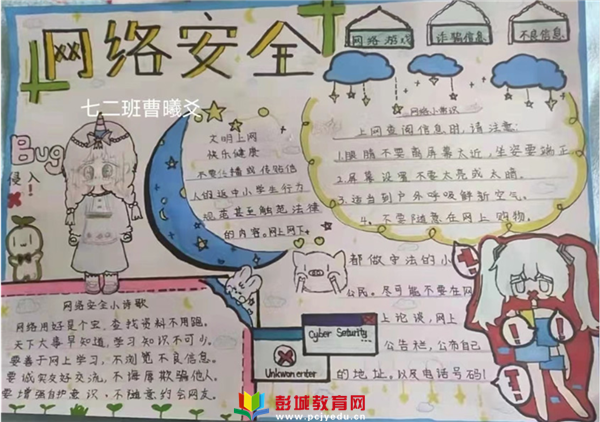 网络安全
网络游戏
诈骗信息
不良信息
七二班曹曦爻
Bug
侵入
!
文明上网
快乐健康
不要任情或传播信
人的返中小学生行力
规范甚至触范法律
的内容。网上网下。
都做守法的小
公民。尽可能不要在网
上论误,网上
公告栏,公布自己
的地址。以及电话号码!
网络小常识
上网查阅信息时,请注意:
1.眼睛不要离屏幕太近,坐姿要端正
2.屏幕设置不要太亮或太暗。
3.适当到户外呼吸新鲜空气。
4.不要随意在网上购物。
网络安全小诗歌
网络用好是个宝,查找资料不用跑。
天下大事早知道,学习知识不可少。
要善于网上学习,不浏览不良信息。
要诚实友好交流,不侮辱欺骗他人。
要增强自护意识,不随意约会网友。
Cyber Seturity
Unkwan enter
彭城教育网
www.pcjyedu.cn